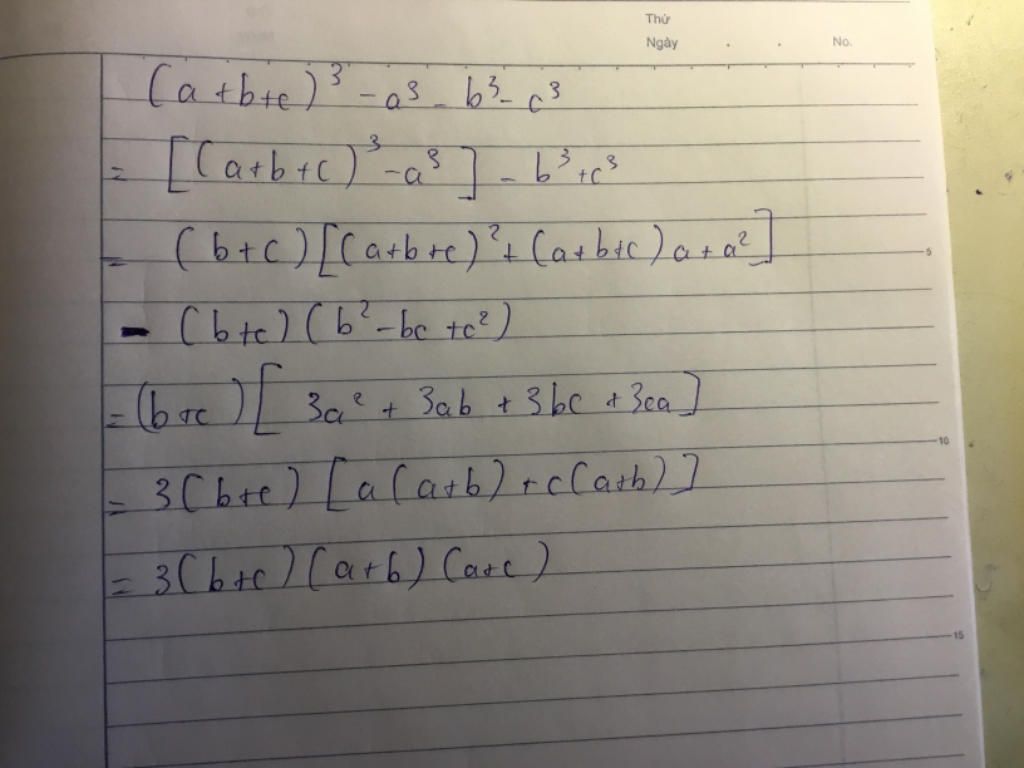 Thứ
Ngày . . No.
(a+b+c)³ - a³ - b³ - c³
= [(a+b+c)³ - a³] - b³ + c³
= (b+c)[(a+b+c)² + (a+b+c)a + a²]
- (b+c)(b² - bc + c²)
= (b+c)[3a² + 3ab + 3bc + 3ca]
= 3(b+c)[a(a+b) + c(a+b)]
= 3(b+c)(a+b)(a+c)
5
10
15